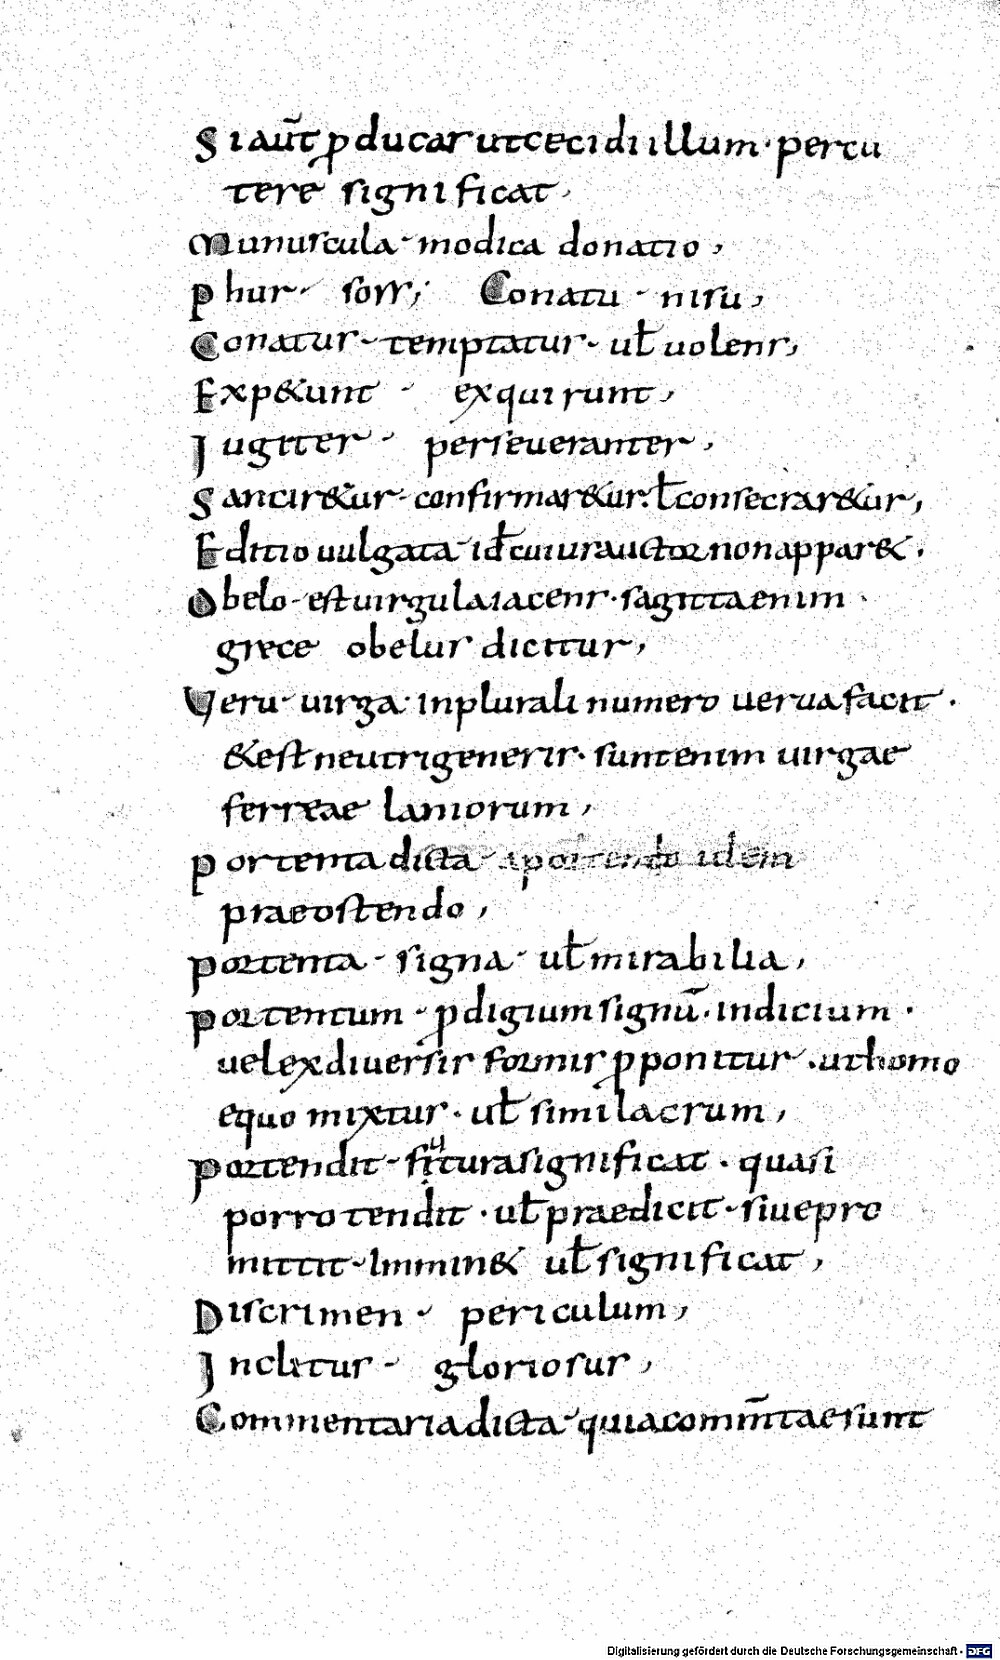 Si aut̄ ꝓducas ut cecidi illum · percu
tere significat ,
Munuscula - modica donatio ,
Phur - sors ; Conatu - nisu ,
Conatur - temptatur - uł uolens ,
Exp&unt - exquirunt ,
Iugiter - perseueranter ,
Sancir&ur - confirmar&ur . ł consecrar&ur ,
Editio uulgata - id ÷ cuius auctor non appar& .
Obelo - est uirgula iacens · sagitta enim ·
grece obelus dicitur ,
Veru - uirga · in plurali numero uerua facit .
& est neutri generis · sunt enim uirgae
ferreae laniorum ,
Portenta dicta - aportendo idem
praeostendo ,
Portenta - signa - uł mirabilia ,
Portentum - ꝓdigium signū . indicium ·
uel ex diuersis formis ꝓponitur . ut homo
equo mixtus · uł similacrum ,
Portendit - futura significat . quasi
porro tendit · uł praedicit - siue pro
mittit - Immin& uł significat ,
Discrimen - periculum ,
Inclitus - gloriosus ,
Commentaria dicta - quia comm̄tae sunt
Digitalisierung gefördert durch die Deutsche Forschungsgemeinschaft - DFG